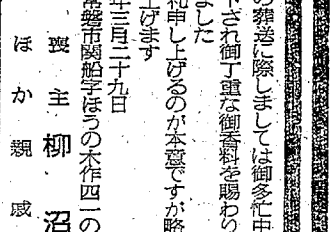 の葬送に際しましては御多忙中
下され御丁重な御香料を賜わり
ました
札申し上げるのが本意ですが略
上げます
年三月二十九日
常磐市関船字ほうの木作四一の
喪主 柳沼
ほか親戚